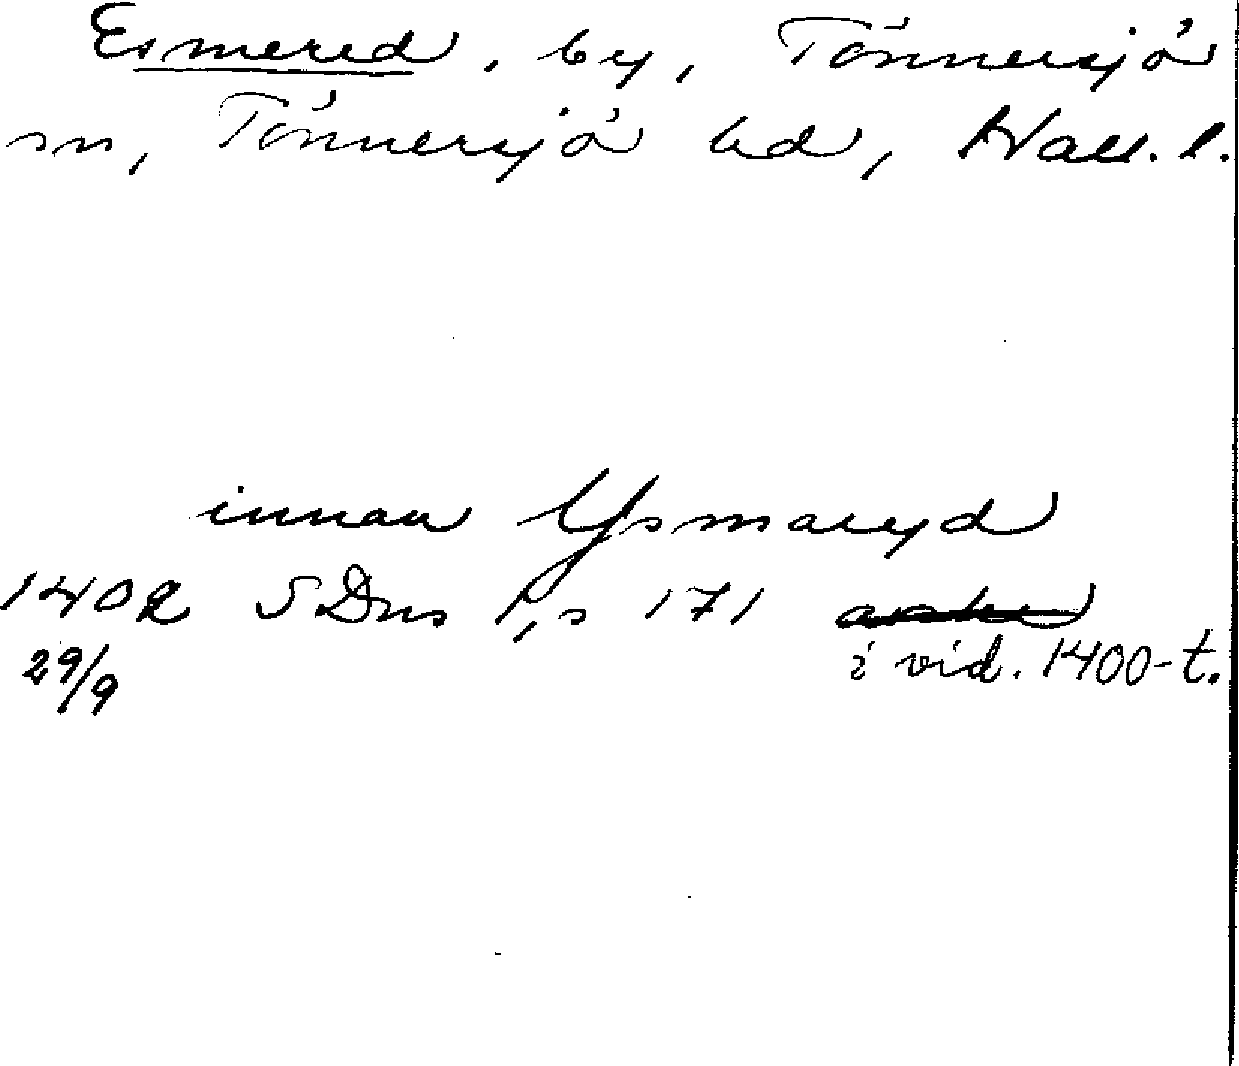 Esmered, by, Tönnersjö
sn, Tönnersjö hd, Hall. l.
innan Ysmaryd
1402 SDns 1, s 171
29/9 i vid. 1400-t.